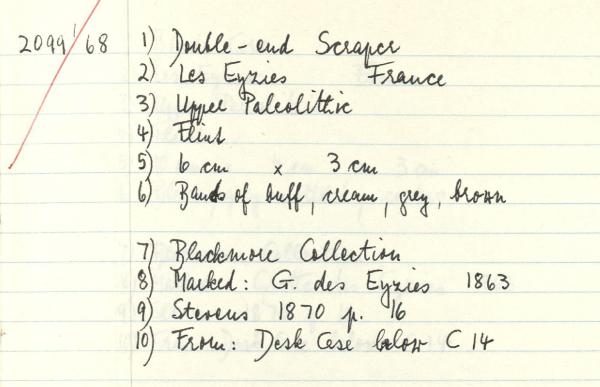 2099'68 1) Double-end Scraper
2) Les Eyzies France
3) Upper Paleolithic
4) Flint
5) 6 cm x 3 cm
6) Bands of buff, cream, grey, brown
7) Blackmore Collection
8) Marked: G. des Eyzies 1863
9) Stevens 1870 p. 16
10) From: Desk Case below C 14